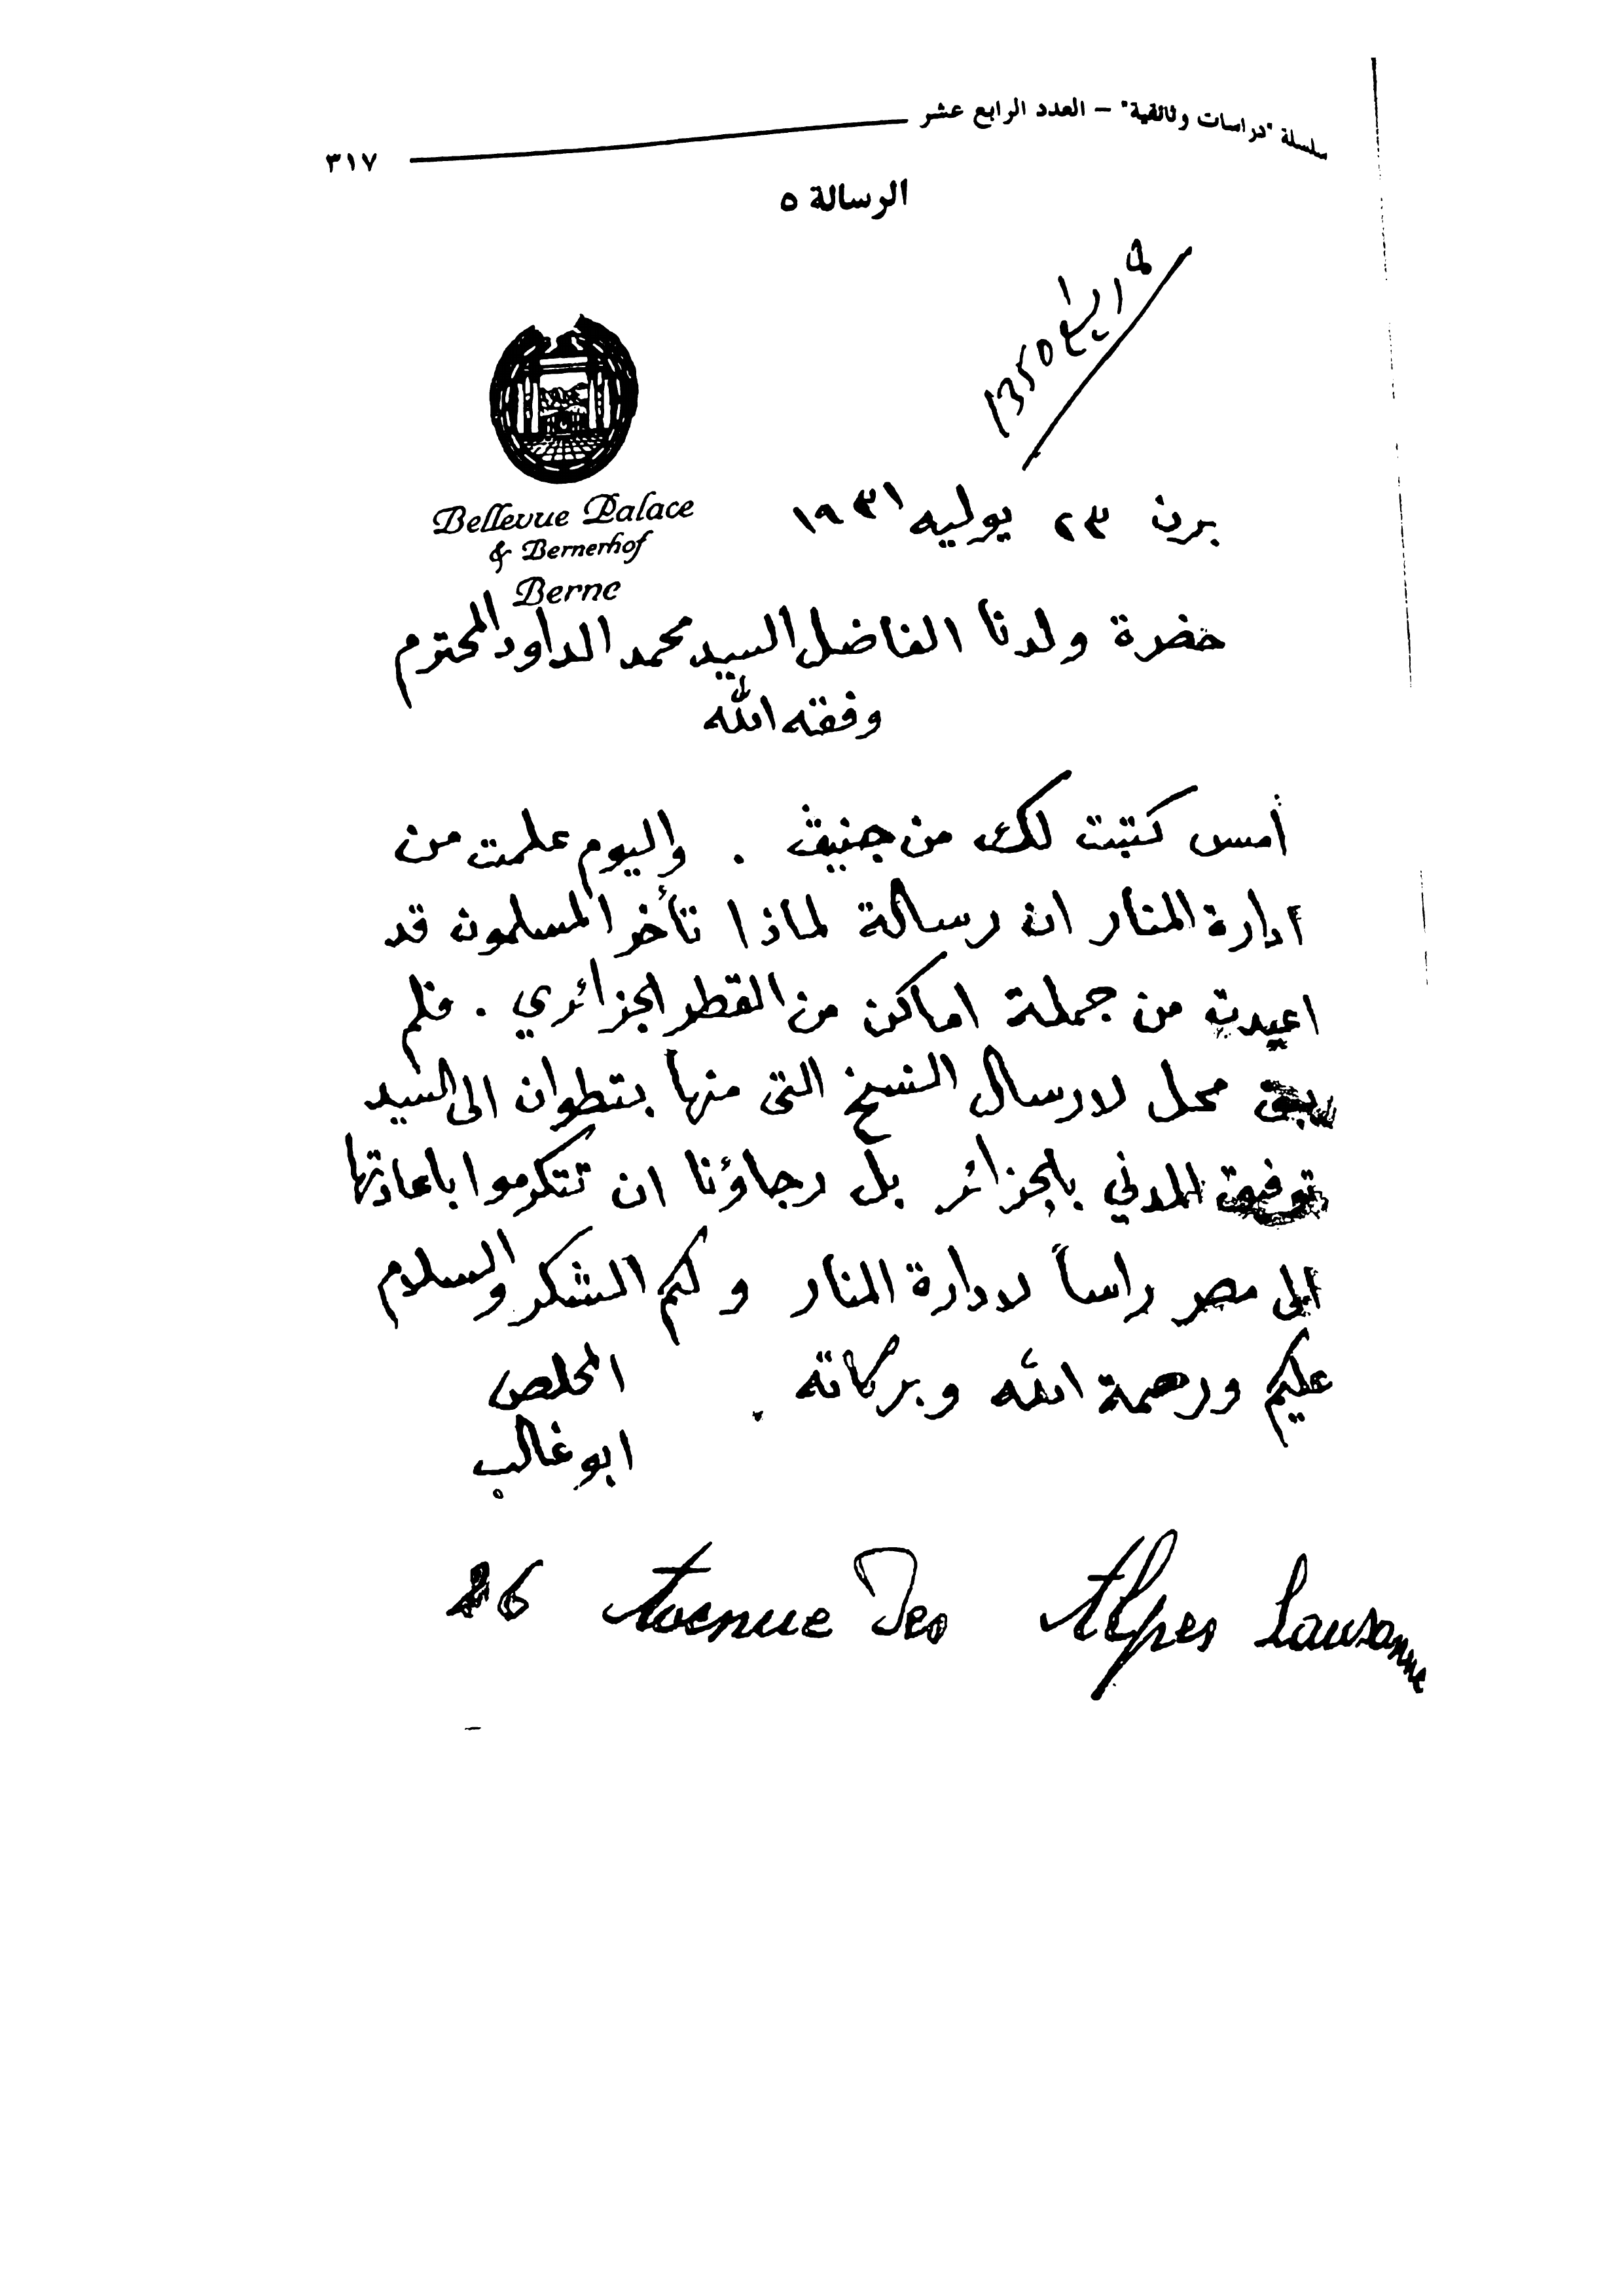 سلسلة "دراسات وثائقية" – العدد الرابع عشر
٣١٧
الرسالة ٥
ربيع 1350
Bellevue Palace
& Bernerhof
Berne
برن ٢٣ يوليه ١٩٣١
حضرة ولدنا الفاضل السيد محمد الداود المحترم
وفقه الله
أمس كتبت لك من جنيڤ . واليوم علمت من
ادارة المنار ان رسالة لماذا تأخر المسلمون قد
اعيدت من جملة اماكن من القطر الجزائري . فلم
يبق محل لارسال النسخ التى منها بتطوان الى السيد
توفيق المدني بالجزائر بل رجاؤنا ان تتكرموا باعادتها
الى مصر راساً لادارة المنار ولكم الشكر والسلام
عليكم ورحمة الله وبركاته .
المخلص
ابو غالب
Avenue Des Alpes Lausanne